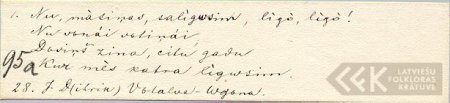 1. Nu, māsiņas, salīgwsim, līgò, līgò!
Nu vonái votinái,
Daviņš zina, citu gadu
95a Kur mēs katra līgwsim.
28. J. D(itrik) Votalva-Wgana.
LATVIEŠU
FOLKLORAS
KRĀTUVE